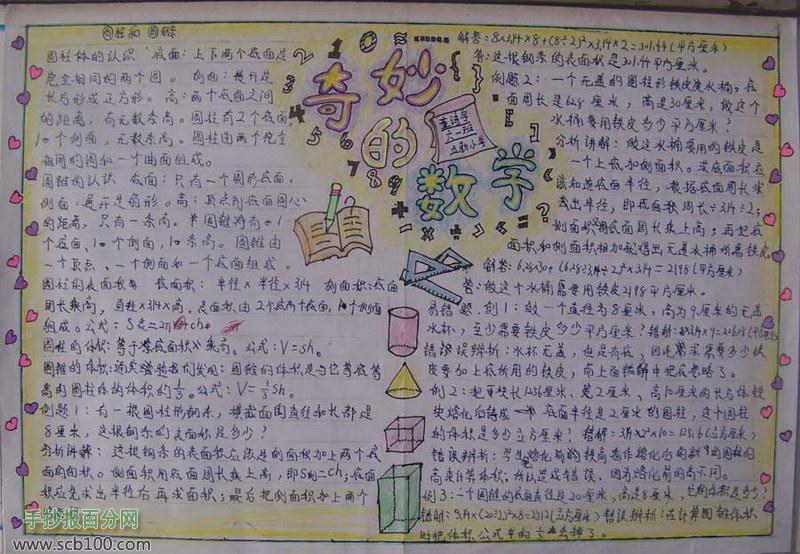 圆柱和圆锥
圆柱体的认识 底面:上下两个底面是
完全相同的两个圆。侧面:展开是
长方形或正方形。高:两个底面之间
的距离,有无数条高。圆柱有2个底面
1个侧面,无数条高。圆柱由两个完全
相同的圆和一个曲面组成。
圆锥的认识 底面:只有一个圆形底面。
侧面:展开是扇形。高:顶点到底面圆心
的距离,只有一条高。圆锥有
个底面,1个侧面,1条高。圆锥由
一个顶点、一个侧面和一个底面组成。
圆柱的表面积 底面积:半径×半径×3.14 侧面积:底面
周长乘高,直径×3.14×高。表面积由2个底面,1个侧面
组成。公式:
圆柱的体积:等于底面积×乘高。公式:V=sh。
圆锥的体积:通过实验我们发现:圆锥的体积是与它等底等
高的圆柱体的体积的1/3。公式:V=1/3sh。
例题1:有一根圆柱形钢条,横截面圆直径和长都是
8厘米,这根钢条的表面积是多少?
分析讲解:这根钢条的表面积应该是侧面积加上两个底
面的面积。侧面积用底面周长乘上高,即S侧=ch;底面
积应先求出半径后再求面积;最后把侧面积加上两个
奇妙
的
数学
解答:8×3.14×8+(8÷2)²×3.14×2=301.44(平方厘米)
答:这根钢条的表面积是301.44平方厘米。
例题2:一个无盖的圆柱形铁皮水桶,底
面周长是62.8厘米,高是30厘米,做这个
水桶要用铁皮多少平方厘米?
分析讲解:做这水桶要用的铁皮是
一个上底加侧面积。求底面积应
该知道底面半径,根据底面周长求
去出半径,即底面积周长÷3.14÷2;
侧面积用底面周长乘上高;再把底
面积和侧面积相加就得出无盖水桶所需铁皮
解答:
答:做这个水桶需要用铁皮2198平方厘米。
易错题 例1:做一个直径为8厘米,高为9厘米的无盖
水杯,至少需要铁皮多少平方厘米?错解:
错误辨析:水杯无盖,但是有底,因此需求需要多少铁
皮要加上底所用的铁皮,而上面错解中把底忽略了。
例2:把可长1256厘米、宽2厘米、高10厘米的长方体铁
块熔化后铸成一底面半径是2厘米的圆柱,这个圆柱
的体积是多少立方厘米?错解:3.14×2²×10=125.6(立方厘米)
错误辨析:学生把熔化前的铁高看作熔化后的圆柱的
高来计算体积,所以造成错误,因为熔化前的高不同。
例3:一个圆锥的底面直径是20厘米,高是8厘米,它的体积是多少?
错解:3.14×(20÷2)²×8=2512(立方厘米) 错误辨析:在计算圆锥体积
时把体积公式中的1/3丢掉了。
手抄报百分网
www.scb100.com